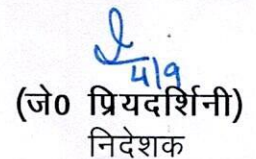 4/9
(जे0 प्रियदर्शिनी)
निदेशक